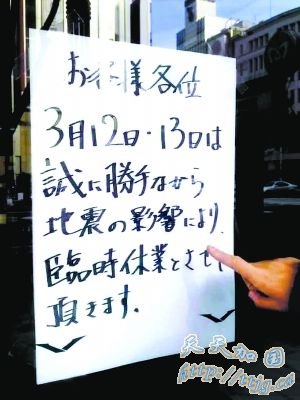 お客様各位
3月12日・13日は
誠に勝手ながら
地震の影響により、
臨時休業とさせて
頂きます。
天天加国